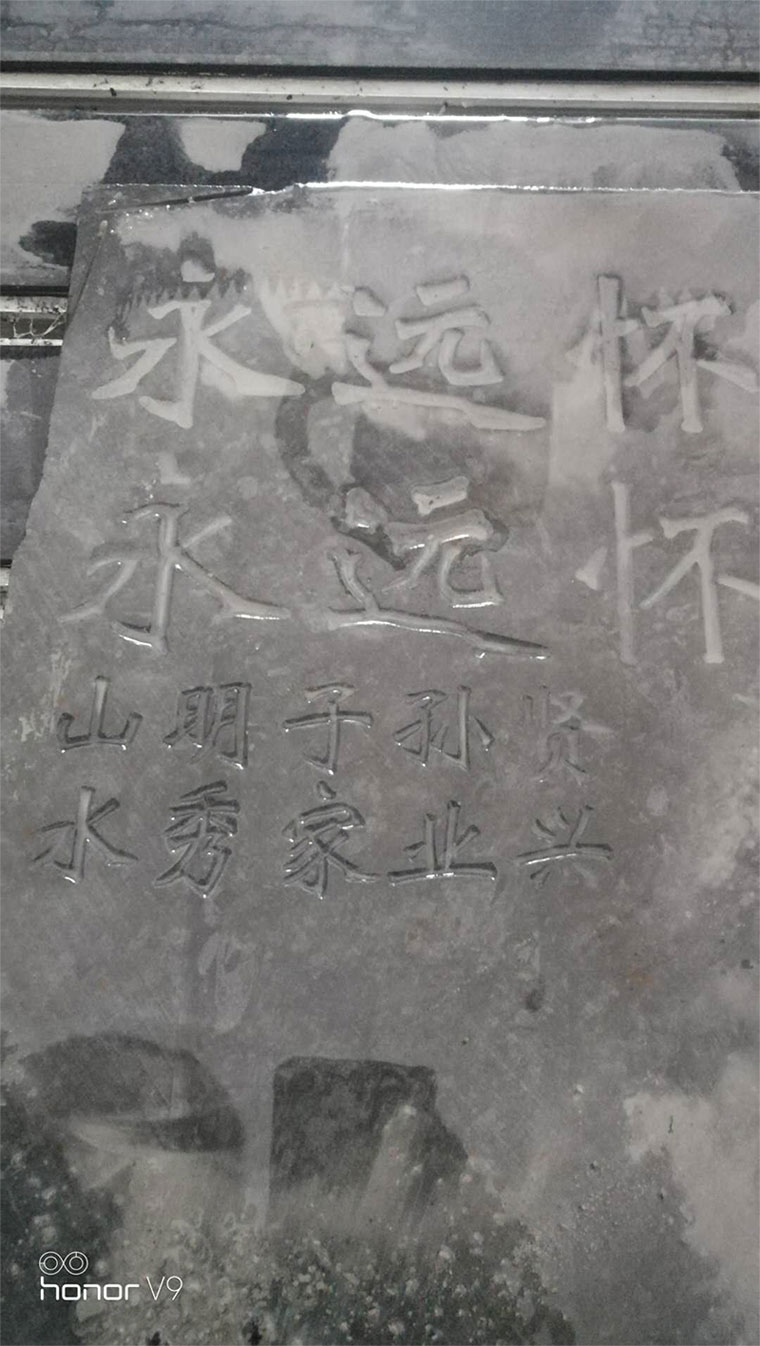 永远怀
永远怀
山明子孙贤
水秀家业兴
honor V9